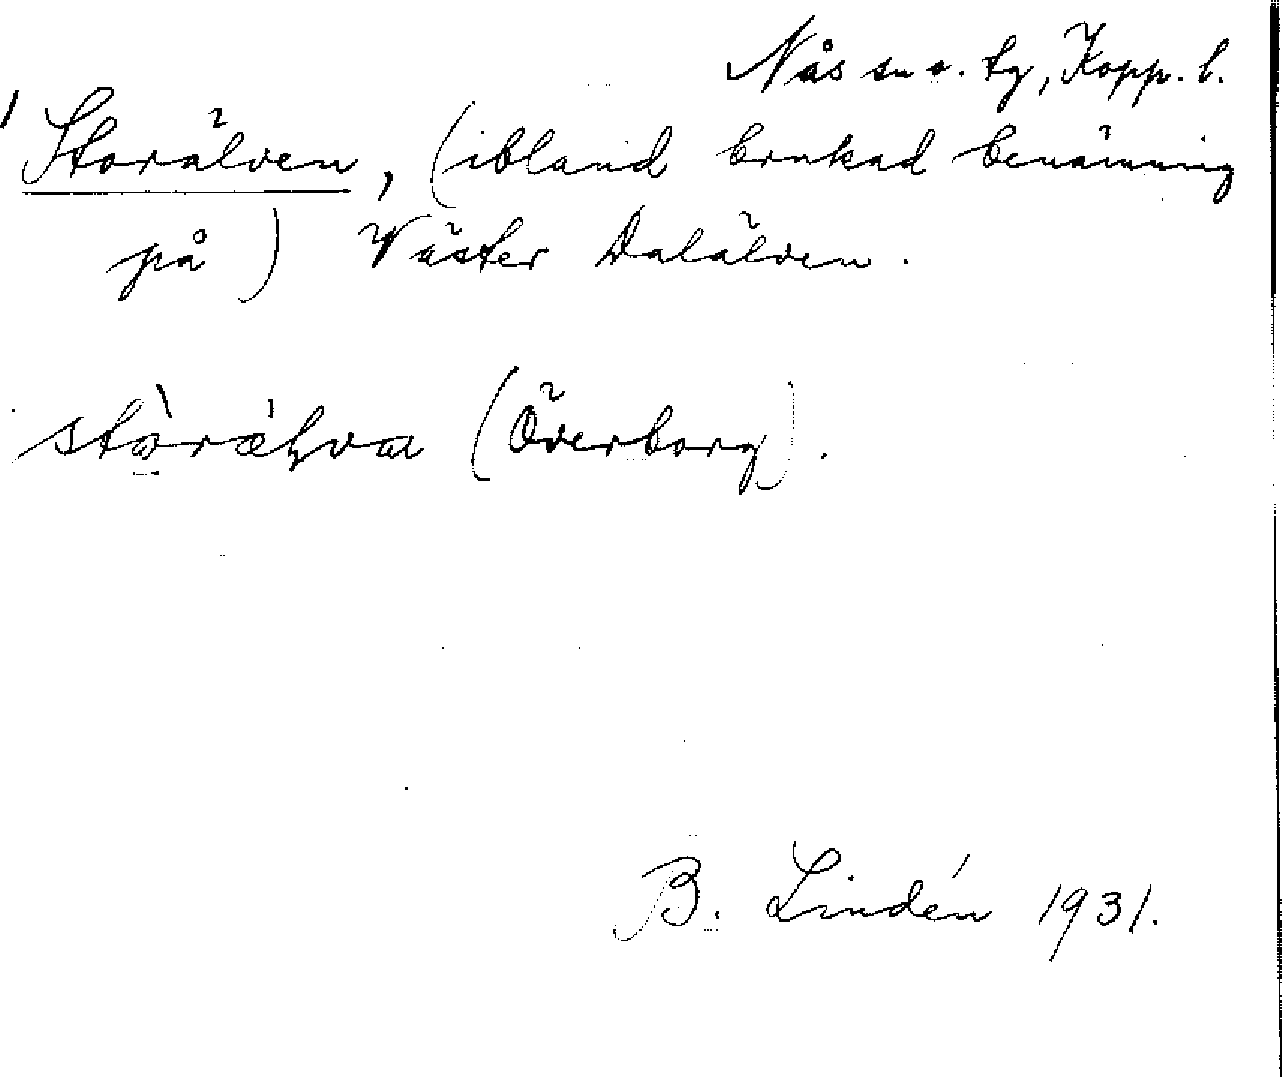 Nås sn o. tg, Kopp. l.
Storälven, (ibland brukad benämning
på) Väster Dalälven.
(Överborg).
B. Lindén 1931.